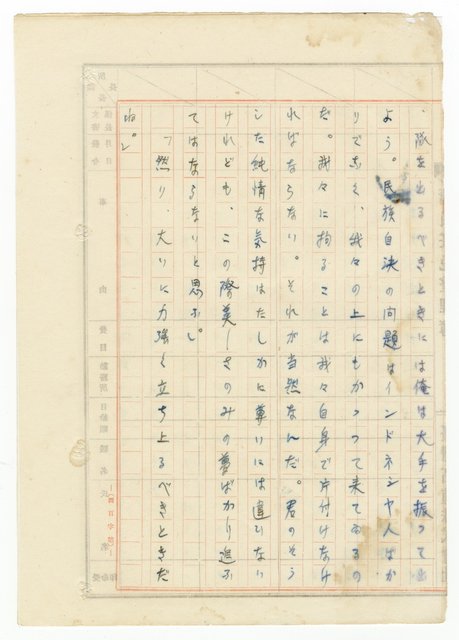 、隊を出るべきときには俺は大手を振って出
よう。民族自決の問題はインドネシヤ人ばか
りでなく、我々の上にもかゝって来てゐるの
だ。我々に拘ることは我々自身で片付けなけ
ればならない。それが当然なんだ。君のそう
した純情な気持はたしかに尊いには違ひない
けれども、この際美しさのみの夢ばかり追ふ
てはならないと思ふ。
「然り、大いに力強く立ち上るべきときだ
ね。」